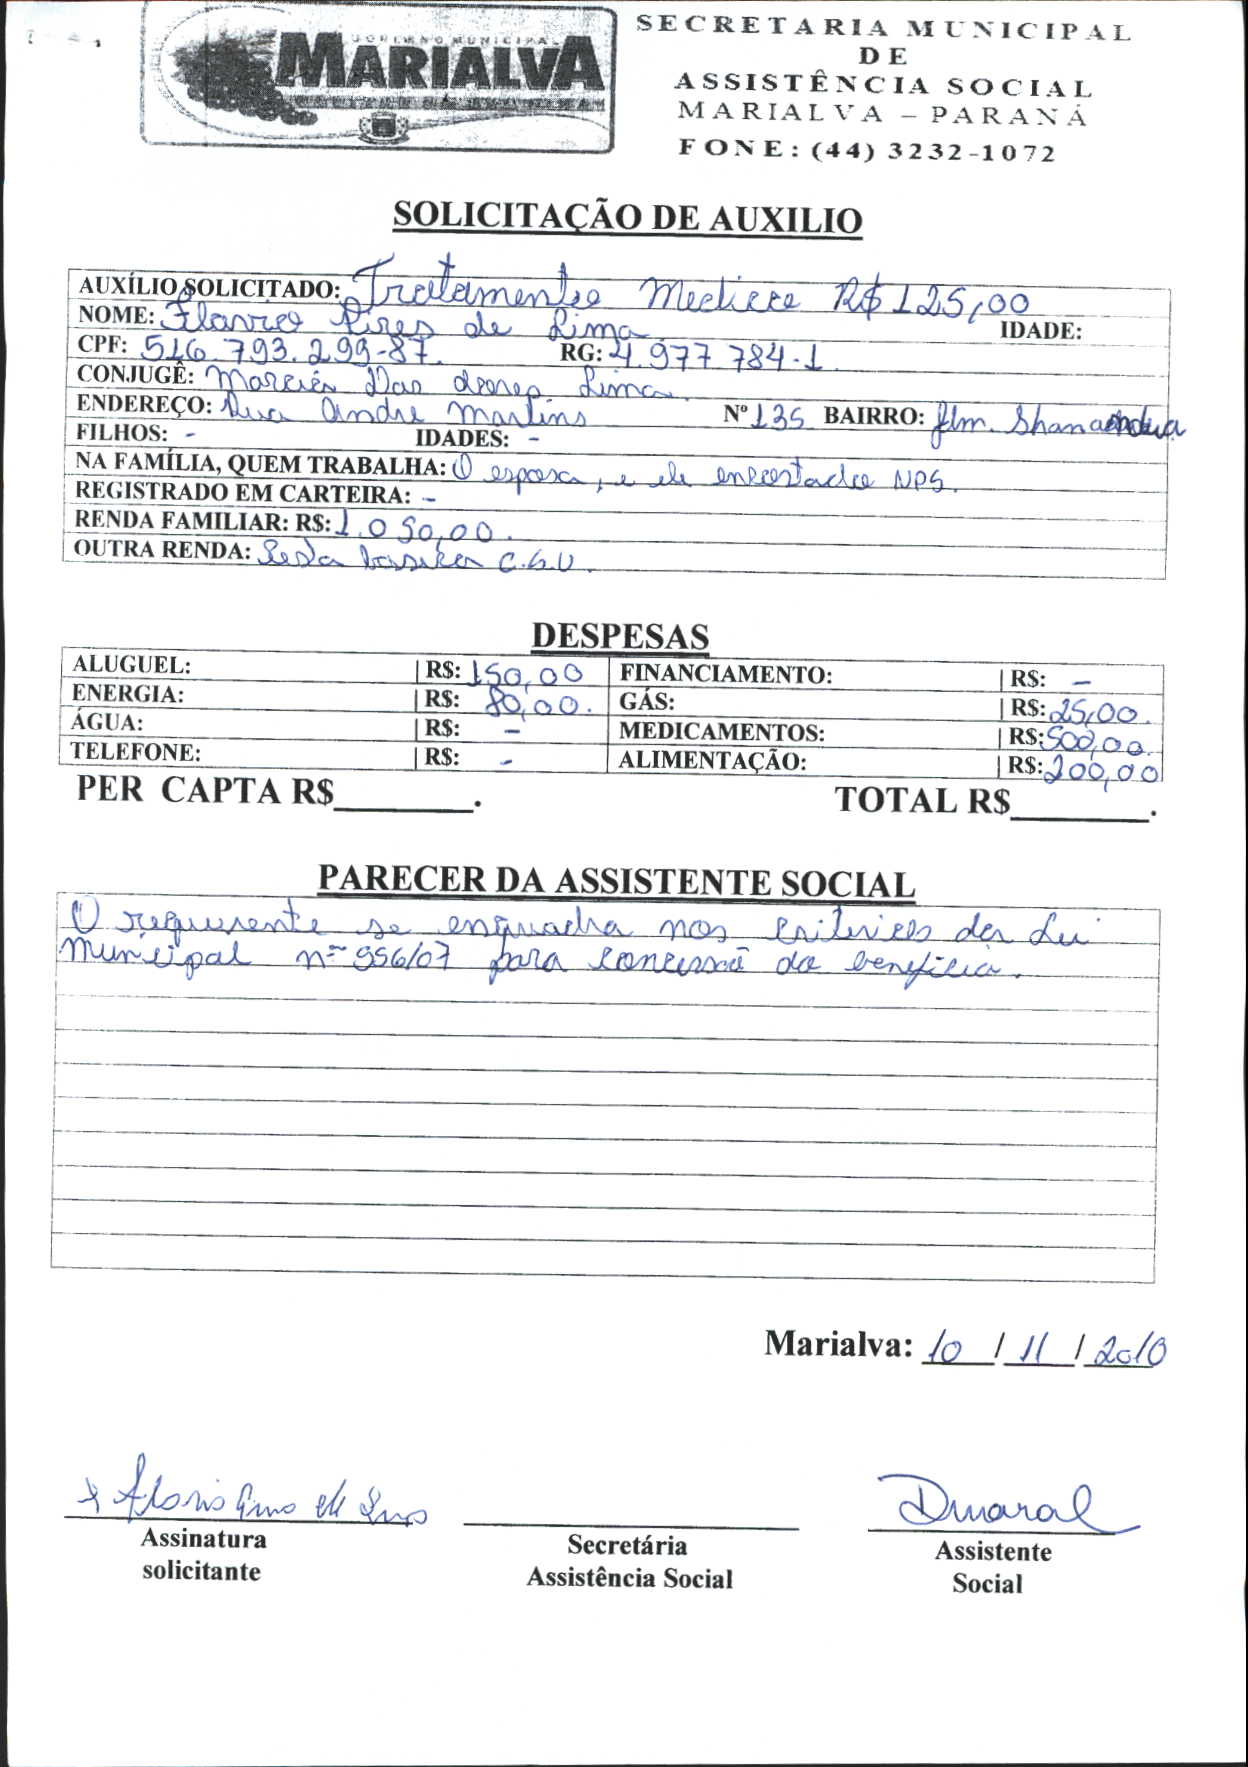 GOVERNO MUNICIPAL
MARIALVA
SECRETARIA MUNICIPAL
DE
ASSISTÊNCIA SOCIAL
MARIALVA – PARANÁ
FONE: (44) 3232-1072
SOLICITAÇÃO DE AUXILIO
AUXÍLIO SOLICITADO: Tratamento Medico R$ 125,00
NOME: Flavio Pires de Lima IDADE:
CPF: 516.793.299-87. RG: 4.977.784-1
CONJUGÊ: Marcia das dores Lima.
ENDEREÇO: Rua Andre Martins Nº 135 BAIRRO: Jdm.
FILHOS: - IDADES: -
NA FAMÍLIA, QUEM TRABALHA: O esposa, e ele encostado NPS.
REGISTRADO EM CARTEIRA: -
RENDA FAMILIAR: R$: 1.050,00.
OUTRA RENDA: Sesta basica C.S.U.
DESPESAS
ALUGUEL: | R$: 150,00 FINANCIAMENTO: | R$: -
ENERGIA: | R$: 80,00. GÁS: | R$: 25,00.
ÁGUA: | R$: - MEDICAMENTOS: | R$: 500,00.
TELEFONE: | R$: - ALIMENTAÇÃO: | R$: 200,00
PER CAPTA R$________. TOTAL R$________.
PARECER DA ASSISTENTE SOCIAL
O requerente se enquadra nos criterios da Lei
Municipal nº 956/07 para concessã do beneficio.
Marialva: 10 / 11 / 2010
Amaral
Assinatura
solicitante
Secretária
Assistência Social
Assistente
Social